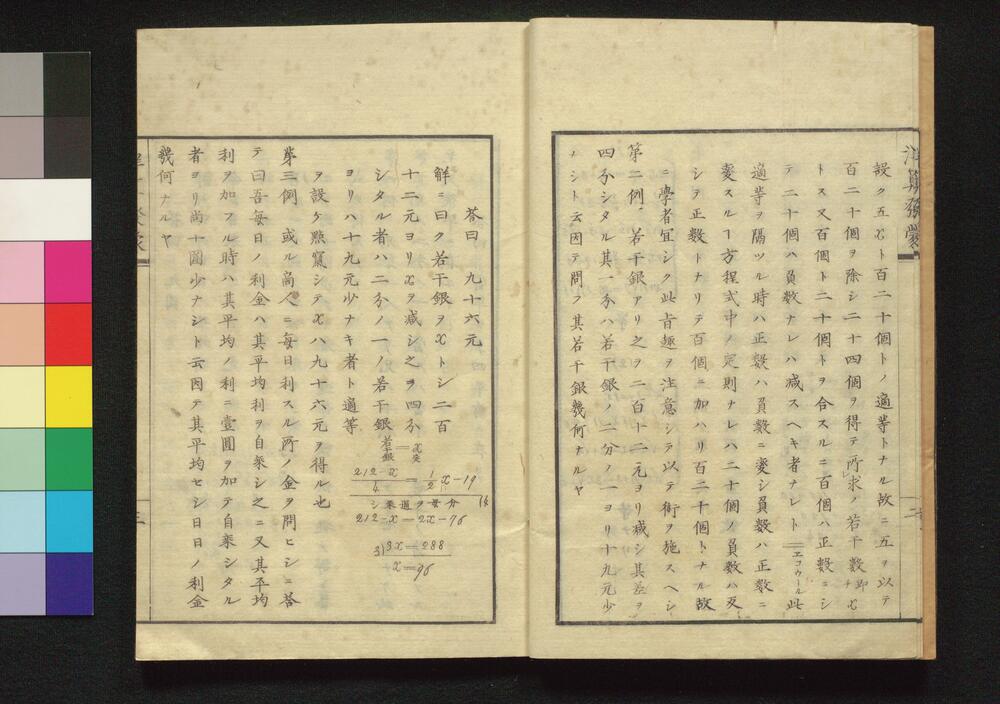 設ク五xト百二十個トノ適等トナル故ニ五ヲ以テ
百二十個ヲ除シ二十四個ヲ得テ所求ノ若干数即チx
トス又百個ト二十個トヲ合スルニ百個ハ正数ニシ
テ二十個ハ負数ナレハ減スヘキ者ナレト＝エコウール此
適等ヲ隔ツル時ハ正数ハ負数ニ変シ負数ハ正数ニ
変スルヿ方程式中ノ定則ナレハ二十個ノ負数ハ反
シテ正数トナリテ百個ニ加ハリ百二十個トナル故
ニ學者宜シク此旨趣ヲ注意シテ以テ術ヲ施スヘシ
第二例 若干銀アリ之ヲ二百十二元ヨリ減シ其差ヲ
四分シタル其一分ハ若干銀ノ二分ノ一ヨリ十九元少
ノシト云因テ問フ其若干銀幾何ナルヤ
答曰 九十六元
解ニ曰ク若干銀ヲxトシ二百
十二元ヨリxヲ減シ之ヲ四分
シタル者ハ二分ノ一ノ若干銀
ヨリハ十九元少ナキ者ト適等
ヲ設ケ點竄シテxハ九十六元ヲ得ル也
若干銀＝x
212-x/4 = 1/2x-19
212-x=2x-76
3)3x=288
x=96
第三例 或ル商人ニ毎日利スル所ノ金ヲ問ヒシニ答
テ曰吾毎日ノ利金ハ其平均利ヲ自乗シ之ニ又其平均
利ヲ加フル時ハ其平均ノ利ニ壹圓ヲ加テ自乗シタル
者ヨリ尚十圓少ナシト云因テ其平均セシ日日ノ利金
幾何ナルヤ